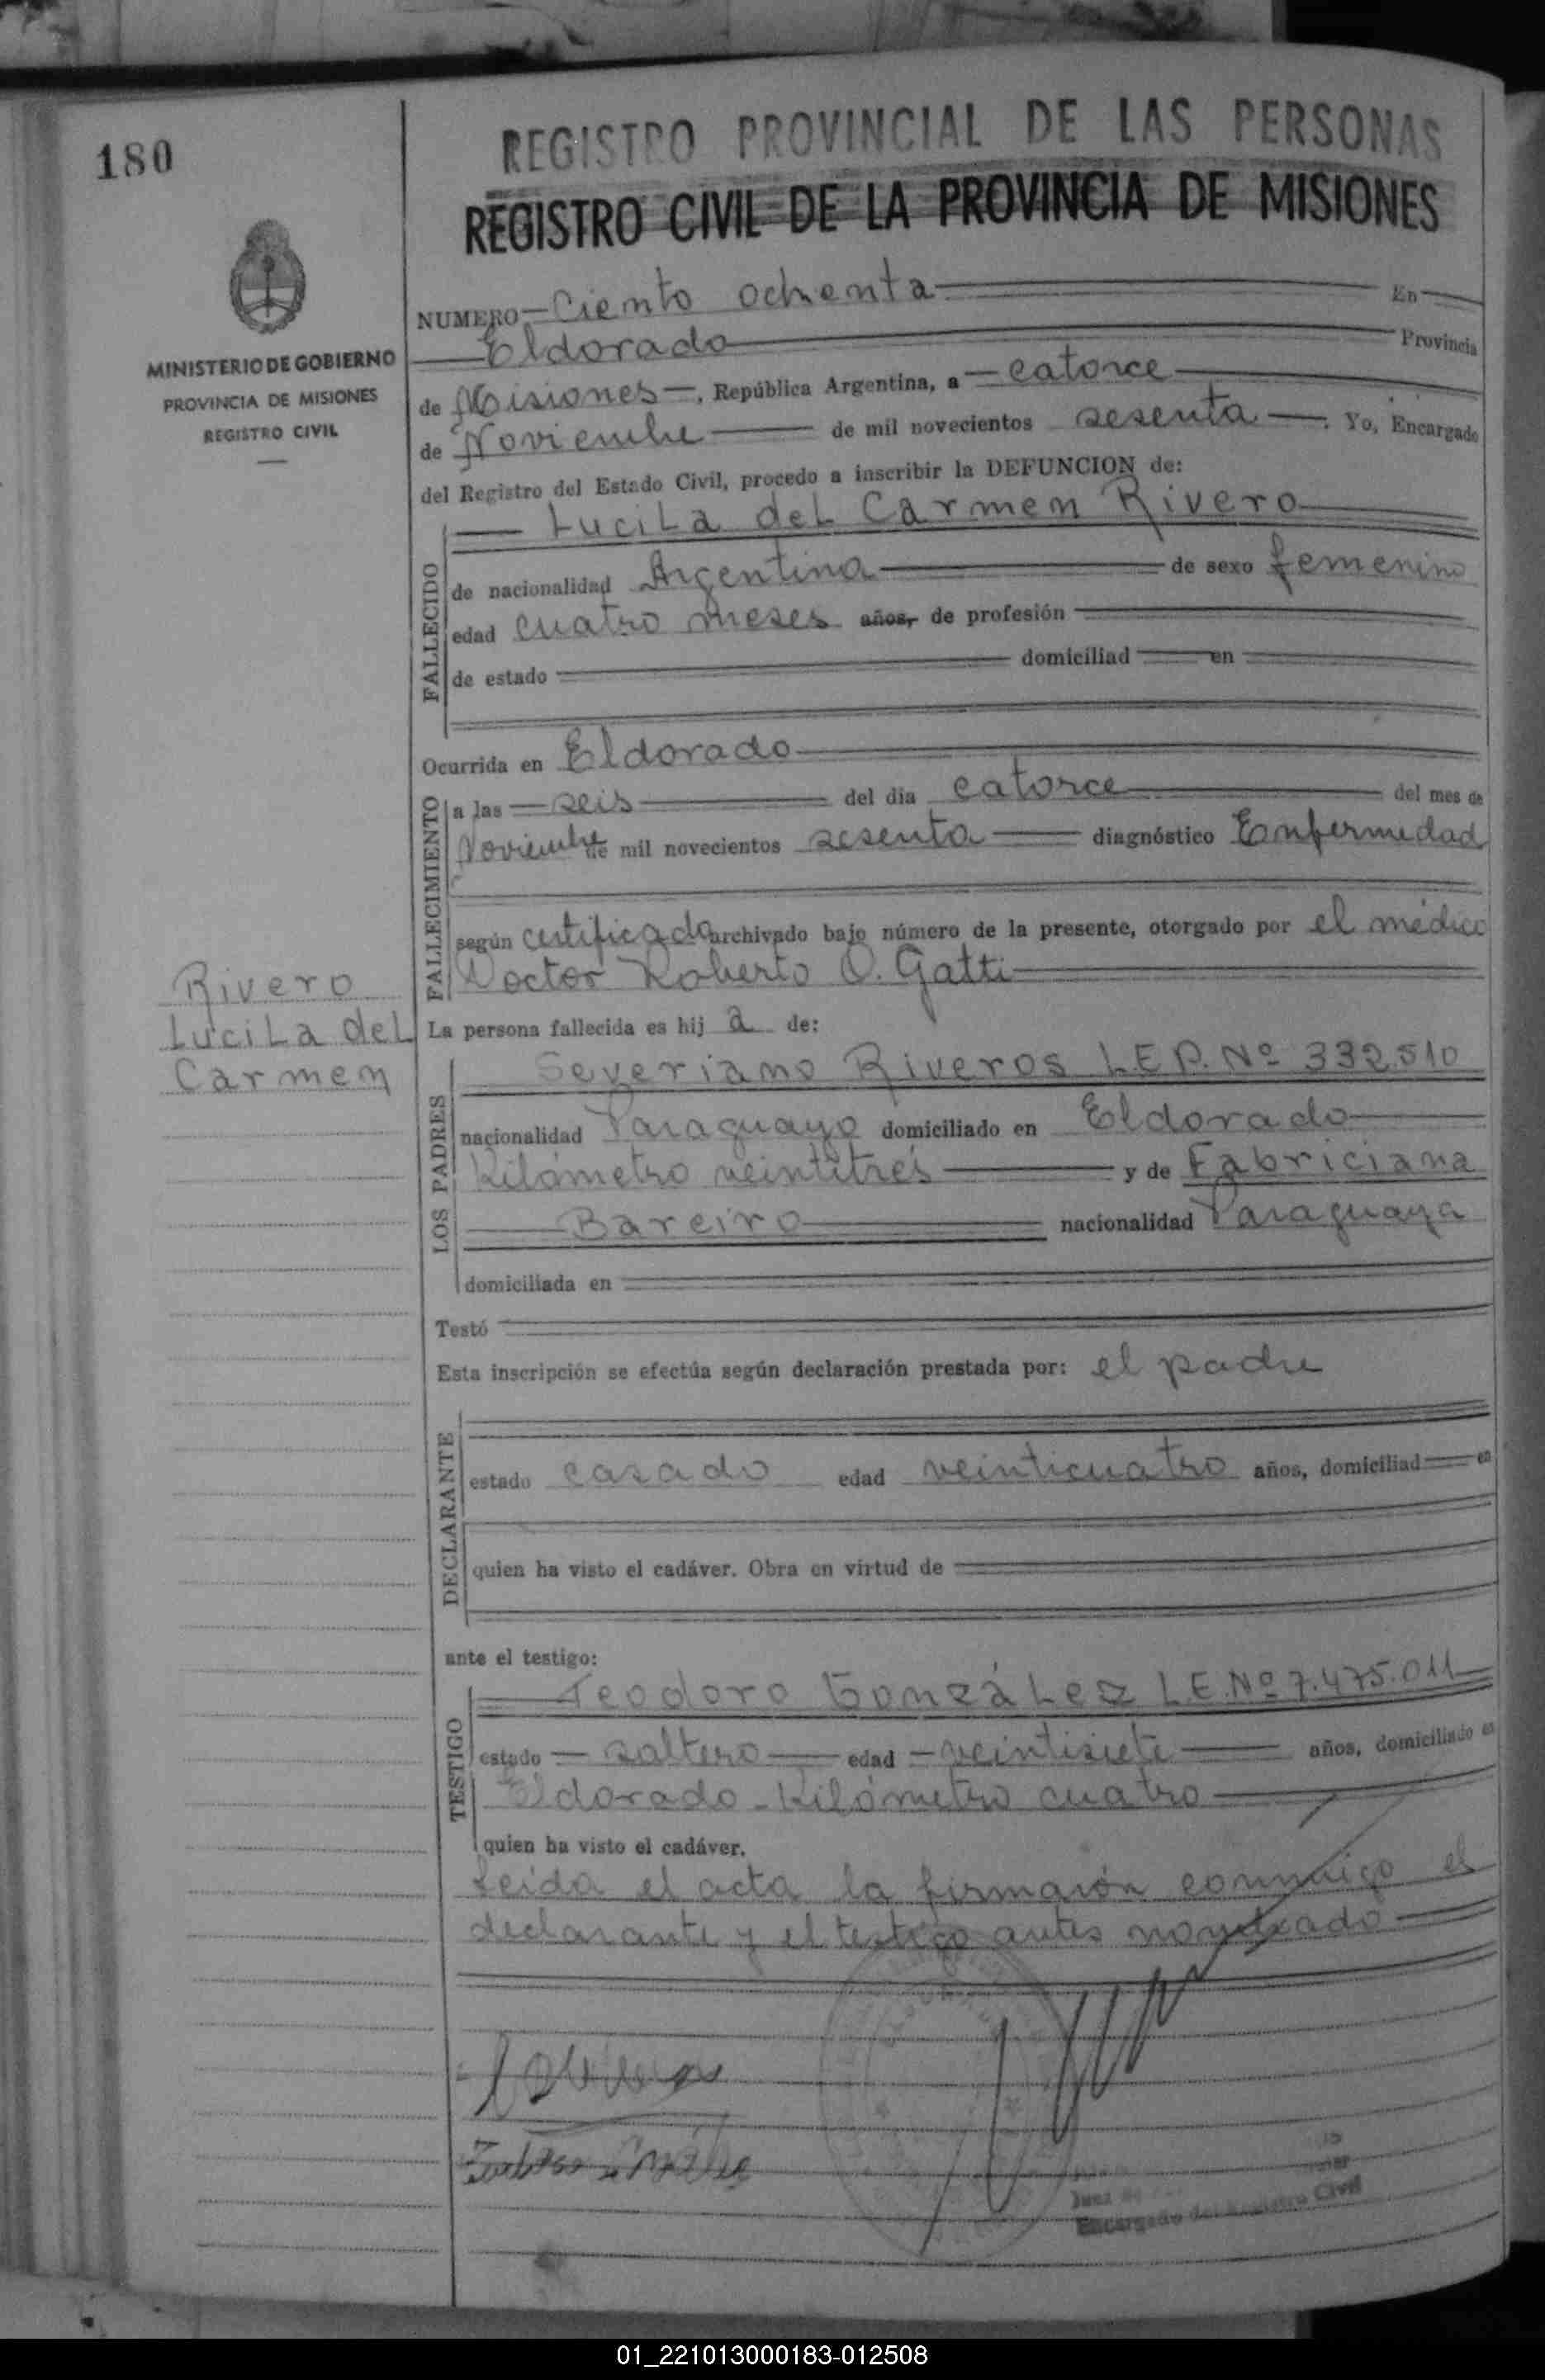 180
REGISTRO PROVINCIAL DE LAS PERSONAS
REGISTRO CIVIL DE LA PROVINCIA DE MISIONES
MINISTERIO DE GOBIERNO
PROVINCIA DE MISIONES
REGISTRO CIVIL
NUMERO Ciento ochenta En
Eldorado Provincia
de Misiones, República Argentina, a catorce
de Noviembre de mil novecientos sesenta. Yo, Encargado
del Registro del Estado Civil, procedo a inscribir la DEFUNCION de:
FALLECIDO
Lucila del Carmen Rivero
de nacionalidad Argentina de sexo femenino
edad cuatro meses años, de profesión
de estado domiciliad en
Ocurrida en Eldorado
FALLECIMIENTO
a las seis del dia catorce del mes de
Noviembre de mil novecientos sesenta diagnóstico Enfermedad
según certificado archivado bajo número de la presente, otorgado por el médico
Doctor Roberto O. Gatti
Rivero
Lucila del
Carmen
La persona fallecida es hij a de:
LOS PADRES
Severiano Riveros L.E.P. Nº 332.510
nacionalidad Paraguayo domiciliado en Eldorado
Kilómetro veintitrés y de Fabriciana
Bareiro nacionalidad Paraguaya
domiciliada en
Testó
Esta inscripción se efectúa según declaración prestada por: el padre
DECLARANTE
estado casado edad veinticuatro años, domiciliad en
quien ha visto el cadáver. Obra en virtud de
ante el testigo:
TESTIGO
Teodoro González L.E. Nº 7.475.011
estado soltero edad veintisiete años, domiciliado en
Eldorado - Kilómetro cuatro
quien ha visto el cadáver.
Leída el acta la firmaron conmigo el
declarante y el testigo antes nombrado
Encargado del Registro Civil
01_221013000183-012508